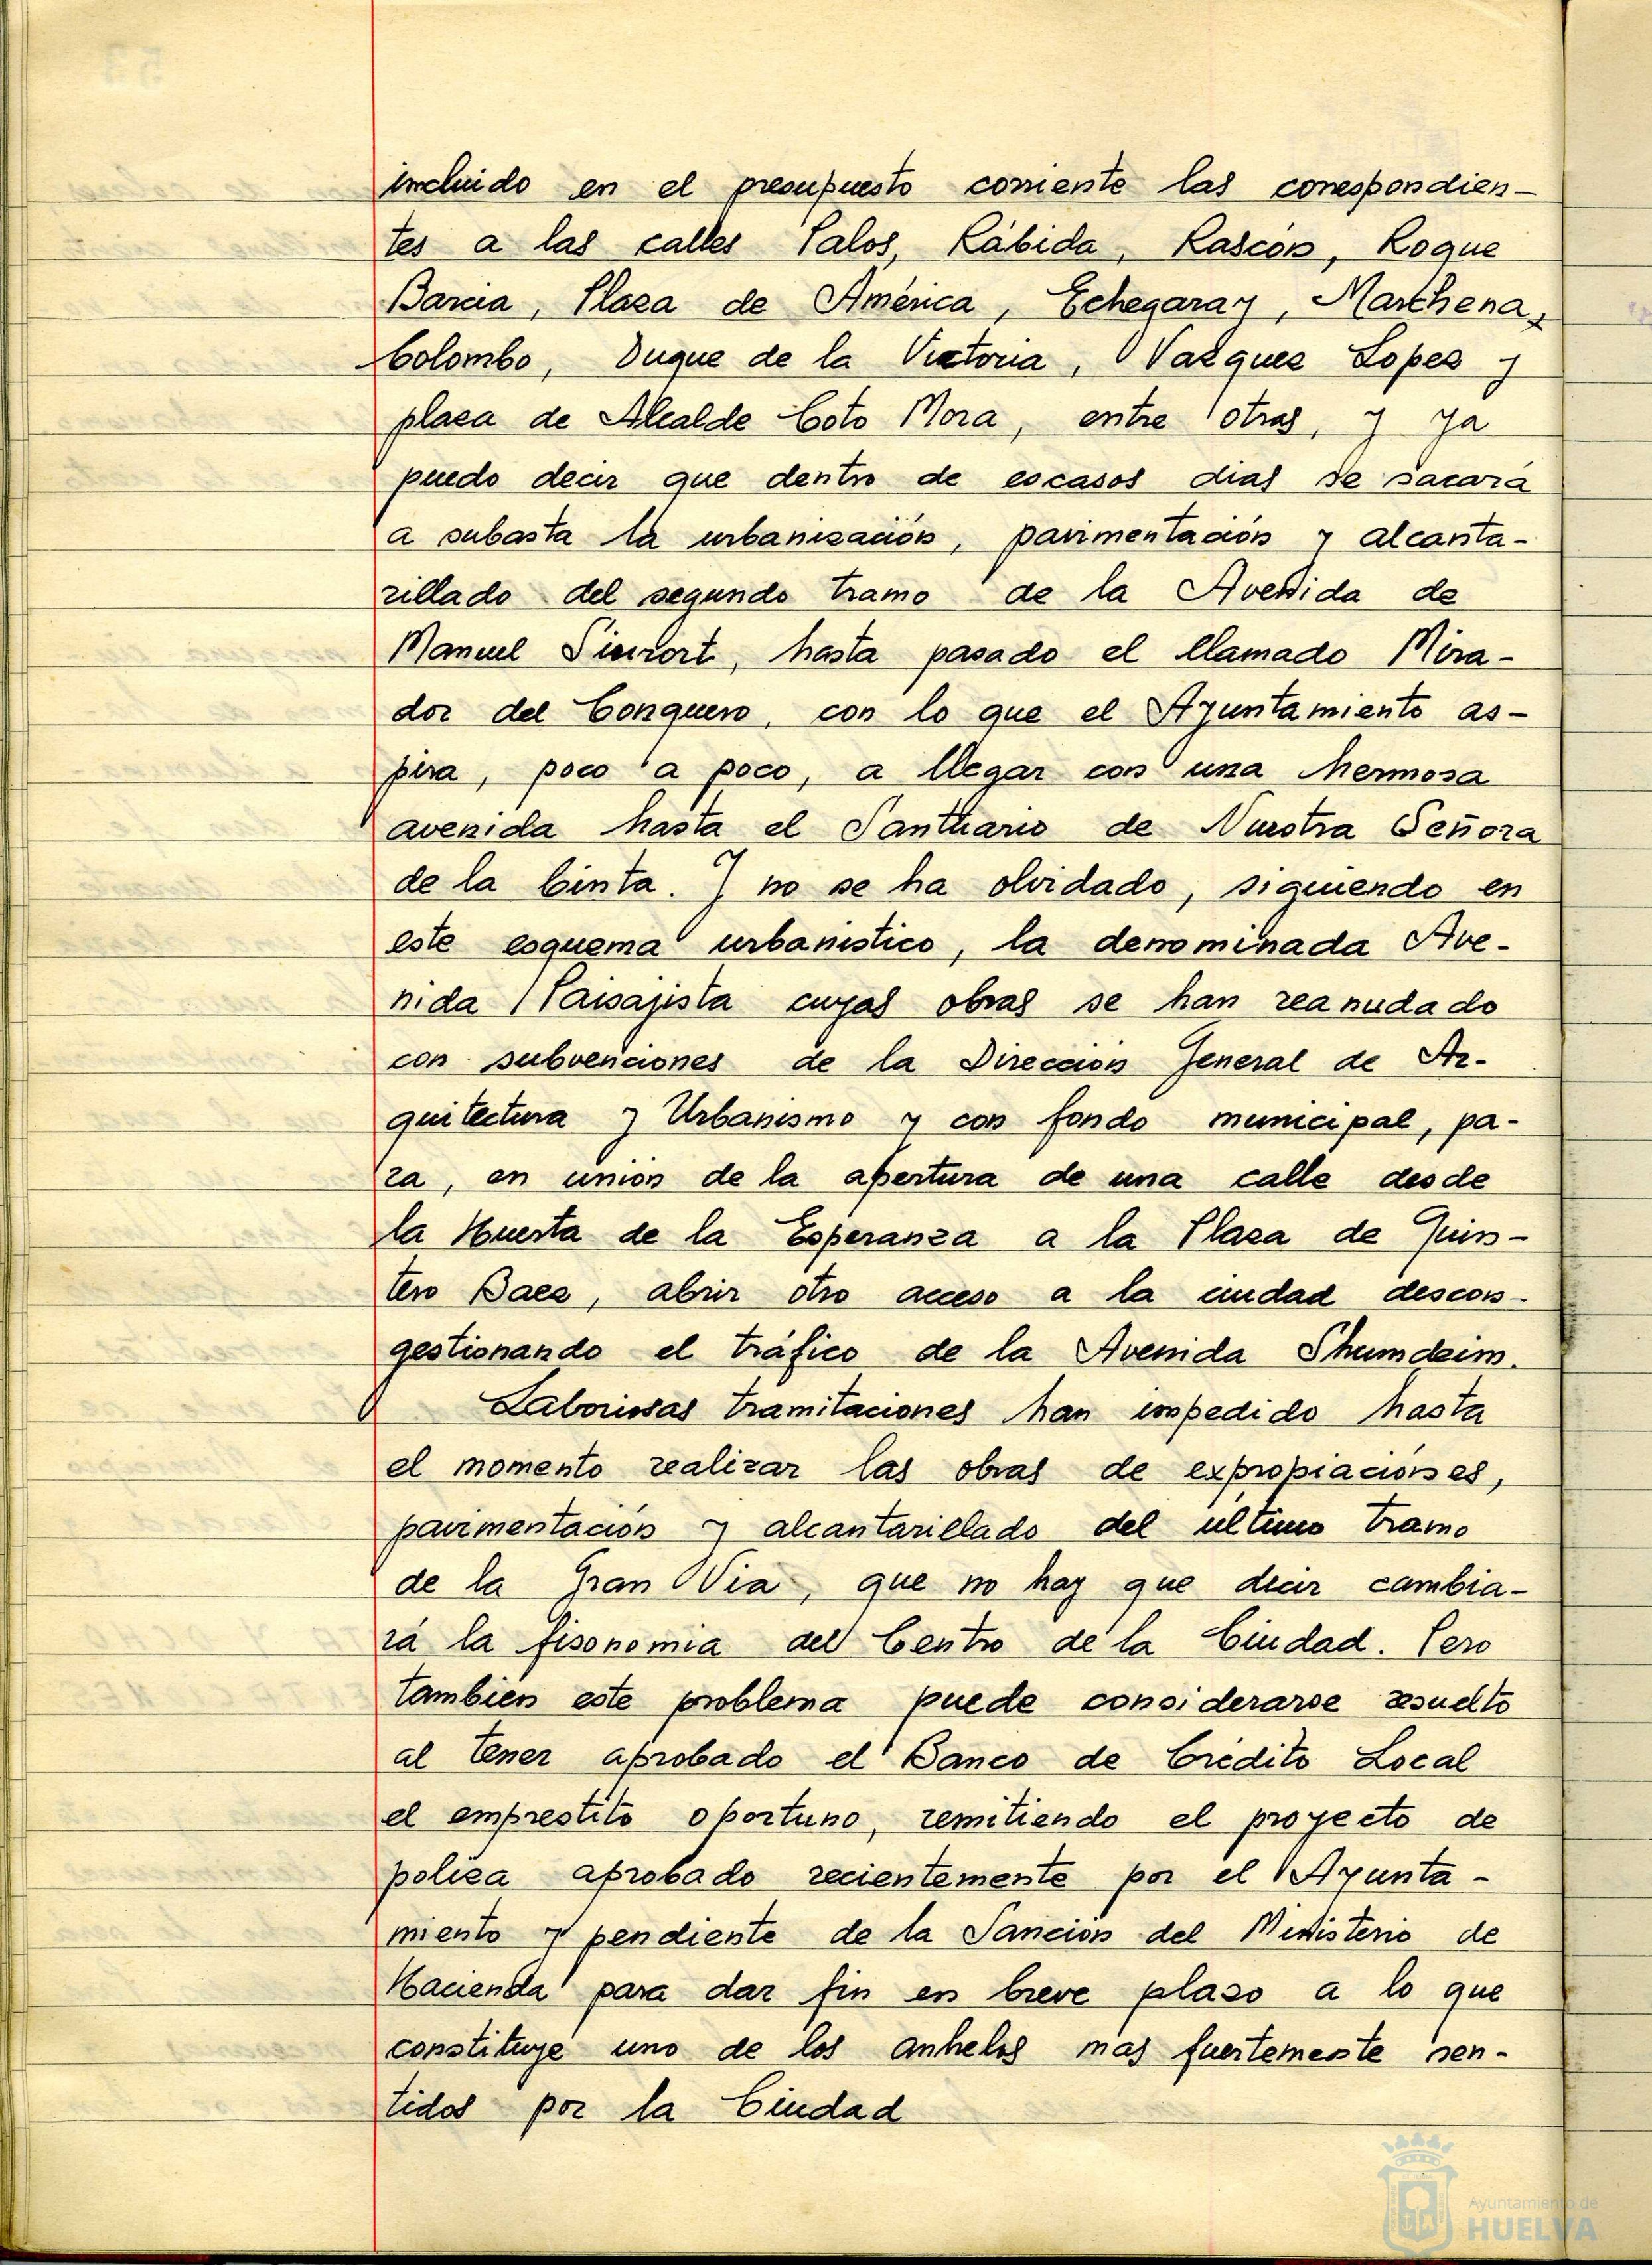 incluido en el presupuesto corriente las correspondien-
tes a las calles Palos, Rábida, Rascón, Roque
Barcia, Plaza de América, Echegaray, Marchena,
Colombo, Duque de la Victoria, Vazquez Lopez y
plaza de Alcalde Coto Mora, entre otras, y ya
puedo decir que dentro de escasos dias se sacará
a subasta la urbanización, pavimentación y alcanta-
rillado del segundo tramo de la Avenida de
Manuel Siurort, hasta pasado el llamado Mira-
dor del Conquero, con lo que el Ayuntamiento as-
pira, poco a poco, a llegar con una hermosa
avenida hasta el Santuario de Nuestra Señora
de la Cinta. Y no se ha olvidado, siguiendo en
este esquema urbanistico, la denominada Ave-
nida Paisajista cuyas obras se han reanudado
con subvenciones de la Dirección General de Ar-
quitectura y Urbanismo y con fondo municipal, pa-
ra, en unión de la apertura de una calle desde
la Huerta de la Esperanza a la Plaza de Quin-
tero Baez, abrir otro acceso a la ciudad descon-
gestionando el tráfico de la Avenida Shumdeim.
Laboriosas tramitaciones han impedido hasta
el momento realizar las obras de expropiaciones,
pavimentación y alcantarillado del último tramo
de la Gran Via, que no hay que decir cambia-
rá la fisonomia del Centro de la Ciudad. Pero
tambien este problema puede considerarse resuelto
al tener aprobado el Banco de Crédito Local
el emprestito oportuno, remitiendo el proyecto de
poliza aprobado recientemente por el Ayunta-
miento y pendiente de la Sanción del Ministerio de
Hacienda para dar fin en breve plazo a lo que
constituye uno de los anhelos mas fuertemente sen-
tidos por la Ciudad
Ayuntamiento de
HUELVA